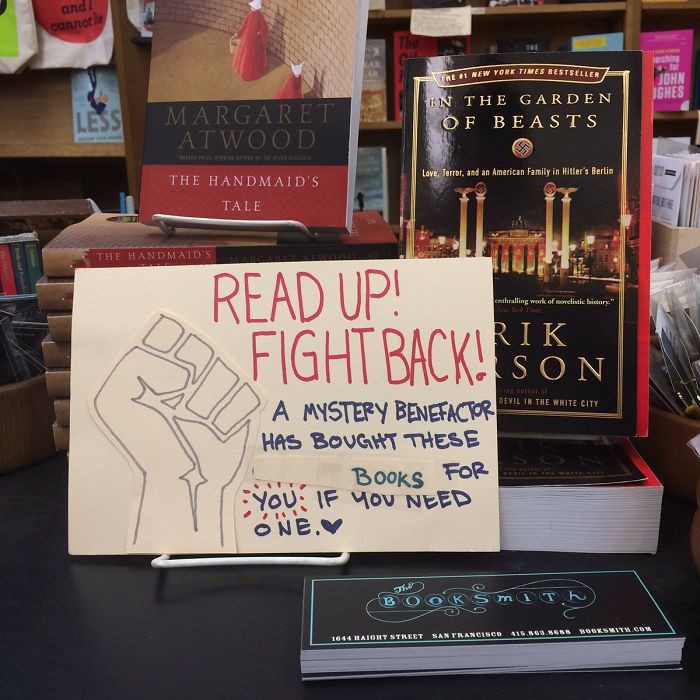 and i
cannot lie
LESS
MARGARET
ATWOOD
BOOKER PRIZE-WINNING AUTHOR OF THE BLIND ASSASSIN
THE HANDMAID'S
TALE
THE HANDMAID'S
TALE
MARGARET ATWOOD
#1 NEW YORK TIMES BESTSELLER
IN THE GARDEN
OF BEASTS
Love, Terror, and an American Family in Hitler's Berlin
enthralling work of novelistic history."
New York Times
RIK
RSON
author of
DEVIL IN THE WHITE CITY
READ UP!
FIGHT BACK!
A MYSTERY BENEFACTOR
HAS BOUGHT THESE
BOOKS FOR
YOU IF YOU NEED
ONE.
The
BOOKSMITH
1644 HAIGHT STREET SAN FRANCISCO 415.863.8688 BOOKSMITH.COM
JOHN